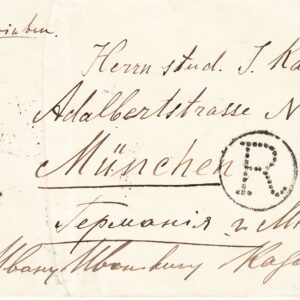 Herrn stud. J. Ka
Adalbertstrasse N
München
R
Германія г. Мю
Ивану Ивановичу Каза